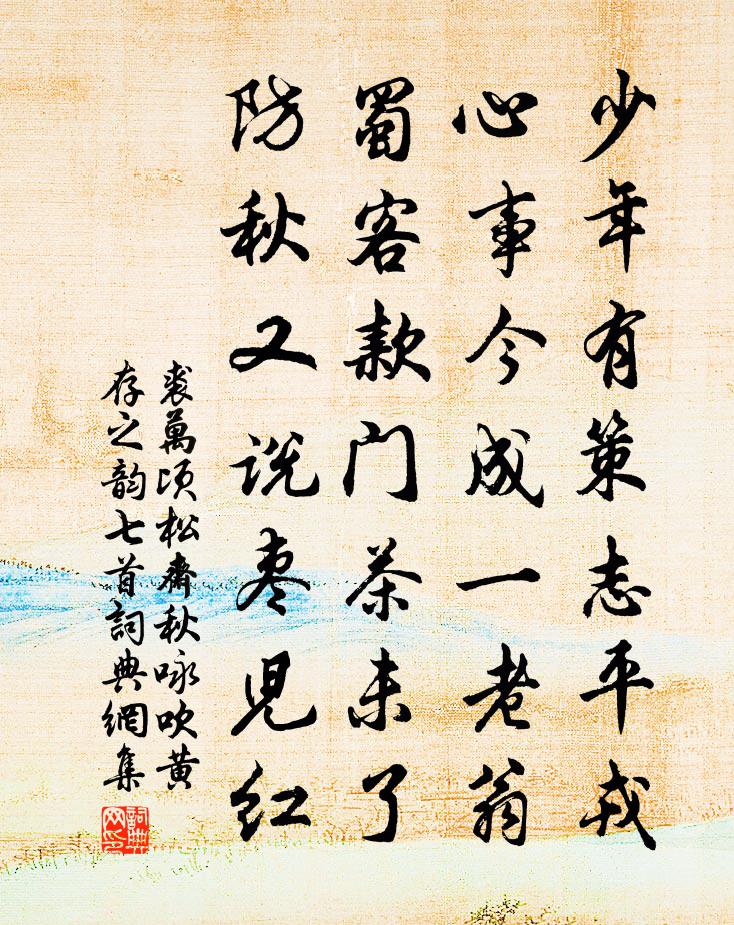 少年有策志平戎
心事今成一老翁
蜀客款门茶未了
防秋又说枣兒红
裘萬頃松齋秋咏吹黄
存之韵七首詞典網集
詞典
网印